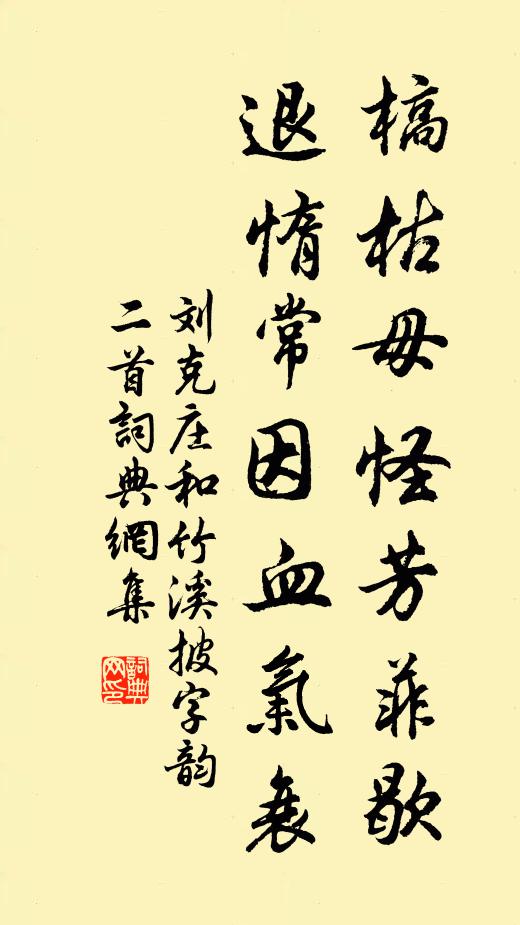 槁枯毋怪芳菲歇
退惰常因血氣衰
刘克庄和竹溪披字韵
二首詞典網集
詞典網印